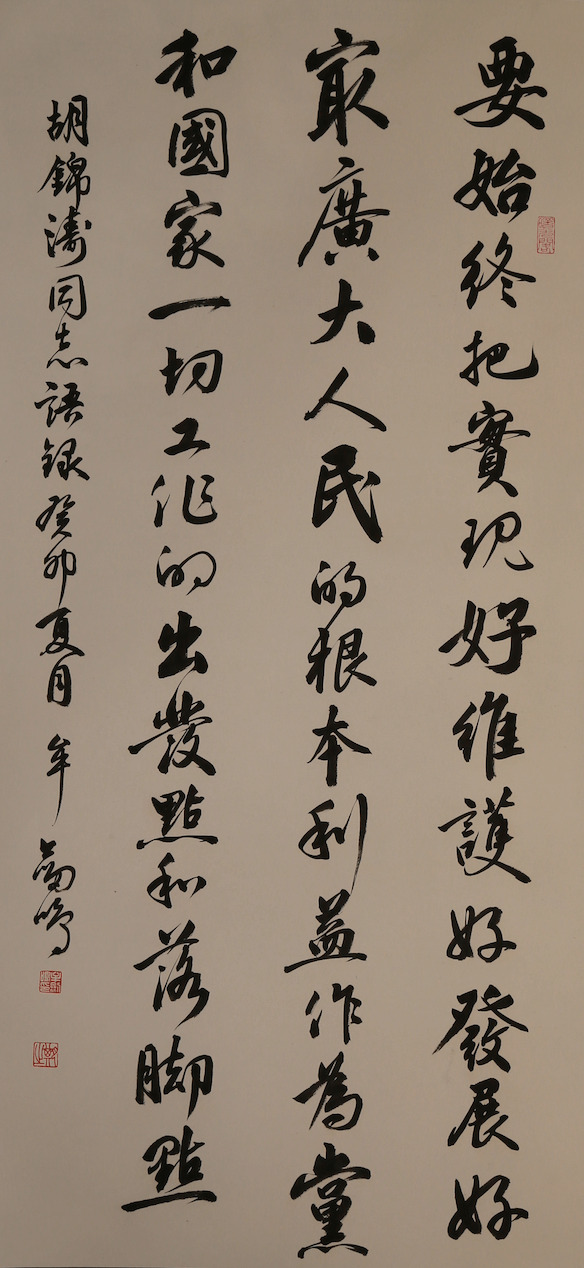 要始終把實現好維護好發展好
最廣大人民的根本利益作為黨
和國家一切工作的出發點和落脚點
胡錦濤同志語録癸卯夏月 牟